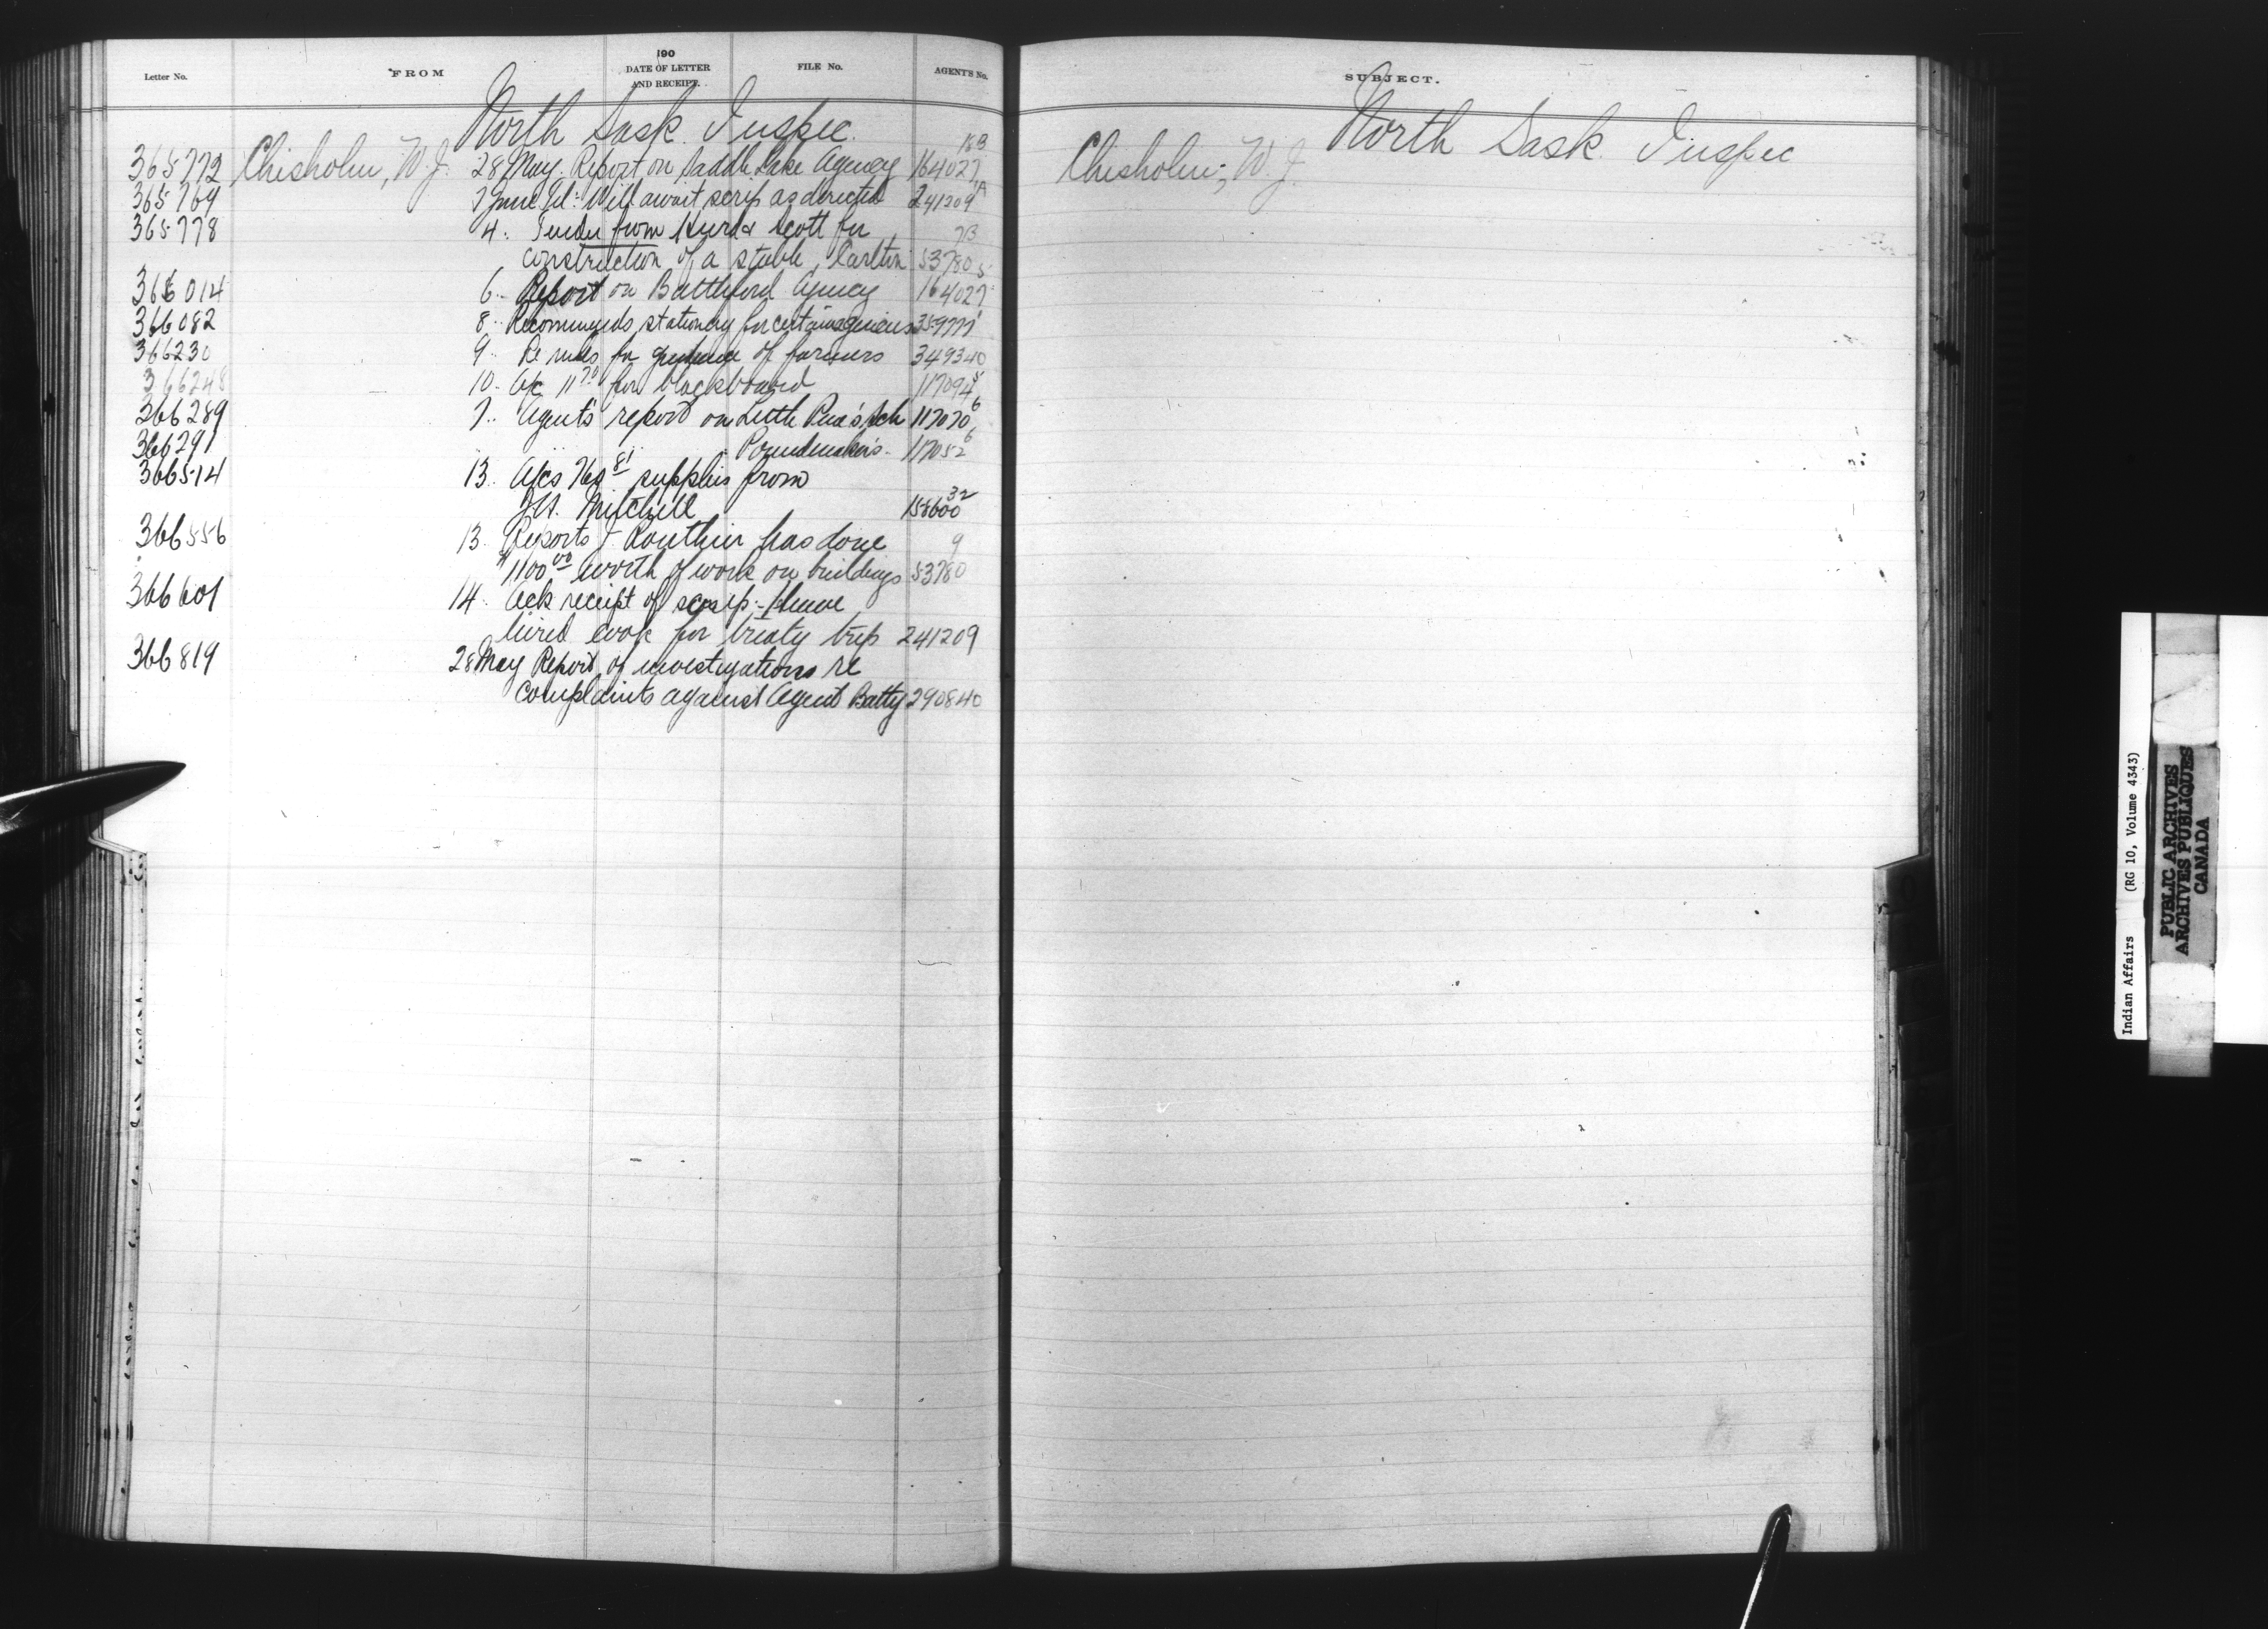 Letter No. FROM 190 DATE OF LETTER AND RECEIPT. FILE No. AGENT'S No.
North Sask. Inspec.
18B
365772 Chisholm, W.J. 28 May. Report on Saddle Lake Agency 164027
365769 7 June Tel: Will await scrip as directed 241209 A
365778 4. Tender from Hurd & Scott for 7B
construction of a stable, Carlton 53780 5
366014 6. Report on Battleford Agency 164027
366082 8. Recommends stationery for certain agencies 359777
366230 9. Re rules for guidance of farmers 349340
366248 10. A/c 11 70 for blackboard 117094 5
366289 7. Agent's report on Little Pine's Sch 117070 6
366291 " " " Poundmaker's. 117052 6
366514 13. A/cs 81 supplies from
Mitchell 158600 32
366556 13. Reports J. Routhier has done 9
$1100 00 worth of work on buildings 53780
366601 14. Ack receipt of scrip:- Have
hired cook for treaty trip 241209
366819 28 May Report of investigations re
complaints against Agent Batty 290840
SUBJECT.
North Sask. Inspec
Chisholm, W.J.
Indian Affairs (RG 10, Volume 4343)
PUBLIC ARCHIVES
ARCHIVES PUBLIQUES
CANADA